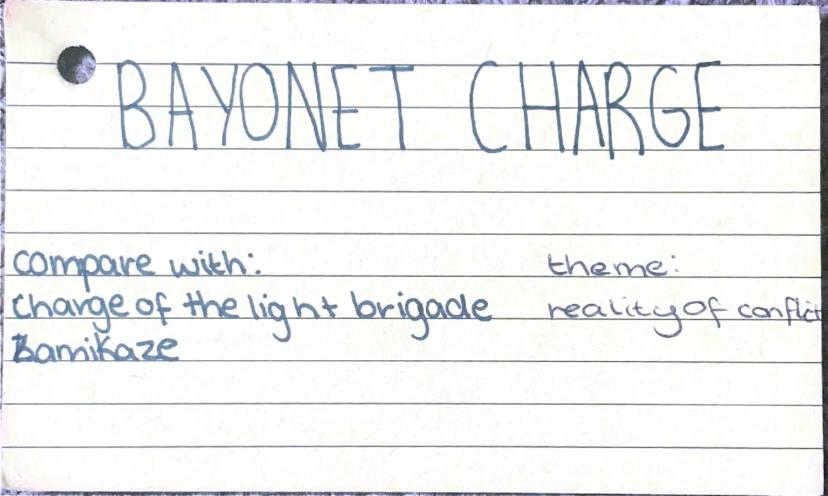 BAYONET CHARGE
compare with:
charge of the light brigade
kamikaze
theme:
reality of conflict